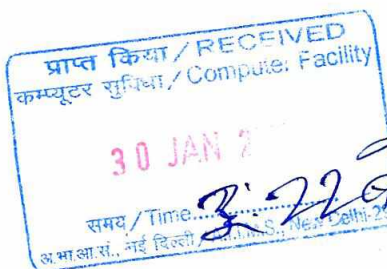 प्राप्त किया / RECEIVED
कम्प्यूटर सुविधा / Computer Facility
30 JAN 2
समय / Time
अ.भा.आ.सं., नई दिल्ली / A.I.I.M.S., New Delhi-29